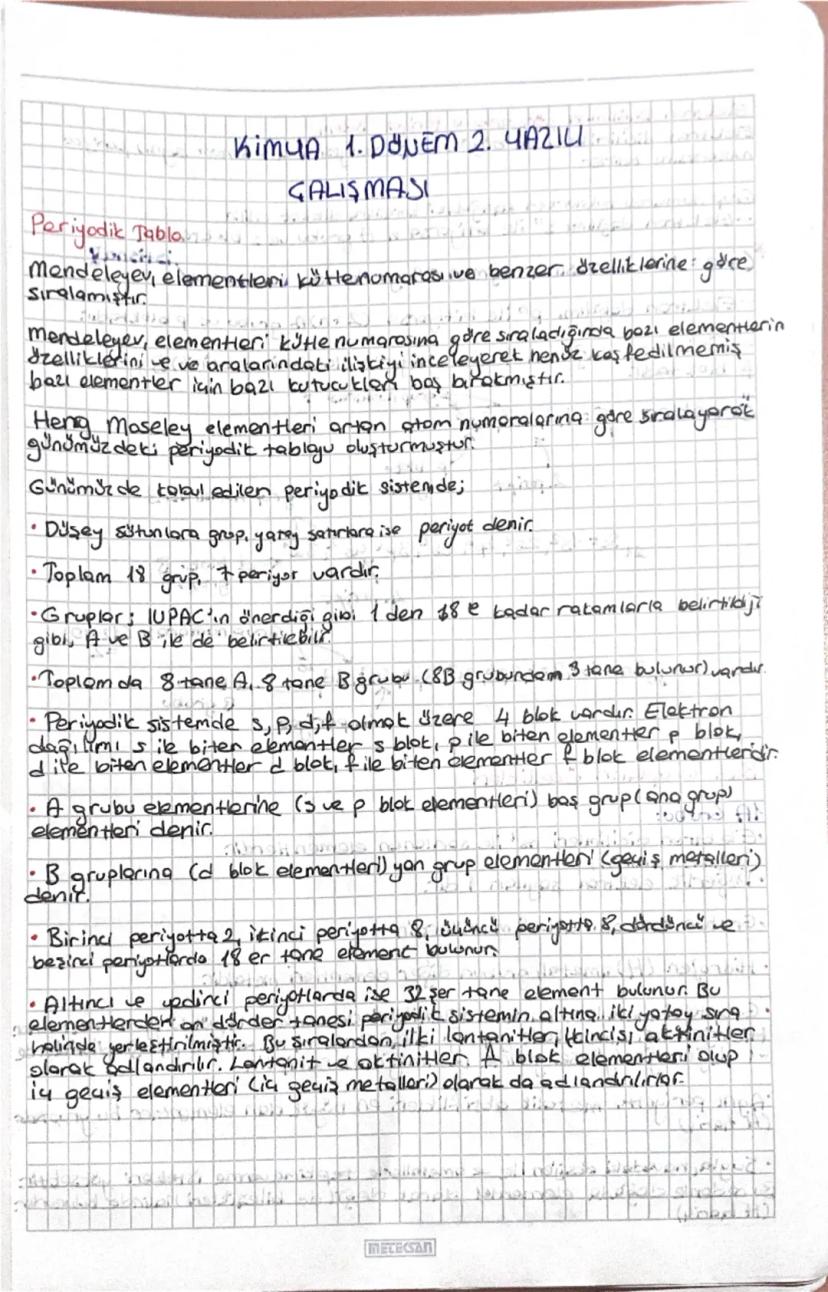 KİMYA 1. DÖNEM 2. YAZILI
ÇALIŞMASI
Periyodik Tablo
Mendeleyev, elementleri kütle numarası ve benzer özelliklerine göre
sıralamıştır.
Mendeleyev, elementleri kütle numarasına göre sıraladığında bazı elementlerin
özelliklerini ve ve aralarındaki ilişkiyi inceleyerek henüz keşfedilmemiş
bazı elementler için bazı kutucukları boş bırakmıştır.
Heny Moseley elementleri artan atom numaralarına göre sıralayarak
günümüzdeki periyodik tabloyu oluşturmuştur.
Günümüzde kabul edilen periyodik sistemde;
• Düşey sütunlara grup, yatay satırlara ise periyot denir.
• Toplam 18 grup, 7 periyor vardır.
• Gruplar; IUPAC'ın önerdiği gibi 1 den 18 e kadar rakamlarla belirtildiği
gibi, A ve B ile de belirtilebilir.
• Toplamda 8 tane A, 8 tane B grubu (8B grubundan 3 tane bulunur) vardır.
• Periyodik sistemde s, p, d, f olmak üzere 4 blok vardır. Elektron
dağılımı s ile biten elementler s blok, p ile biten elementler p blok,
d ile biten elementler d blok, f ile biten elementler f blok elementleridir.
• A grubu elementlerine (s ve p blok elementleri) baş grup (ana grup)
elementleri denir.
• B gruplarına (d blok elementleri) yan grup elementleri (geçiş metalleri)
denir.
• Birinci periyotta 2, ikinci periyotta 8, üçüncü periyotta 8, dördüncü ve
beşinci periyotlarda 18 er tane element bulunur.
• Altıncı ve yedinci periyotlarda ise 32 şer tane element bulunur. Bu
elementlerden on dörder tanesi periyodik sistemin altına iki yatay sıra
halinde yerleştirilmiştir. Bu sıralardan ilki lantanitler, ikincisi aktinitler
olarak adlandırılır. Lantanit ve aktinitler, blok elementleri olup
iç geçiş elementleri (iç geçiş metalleri) olarak da adlandırılırlar.
METEKSAN